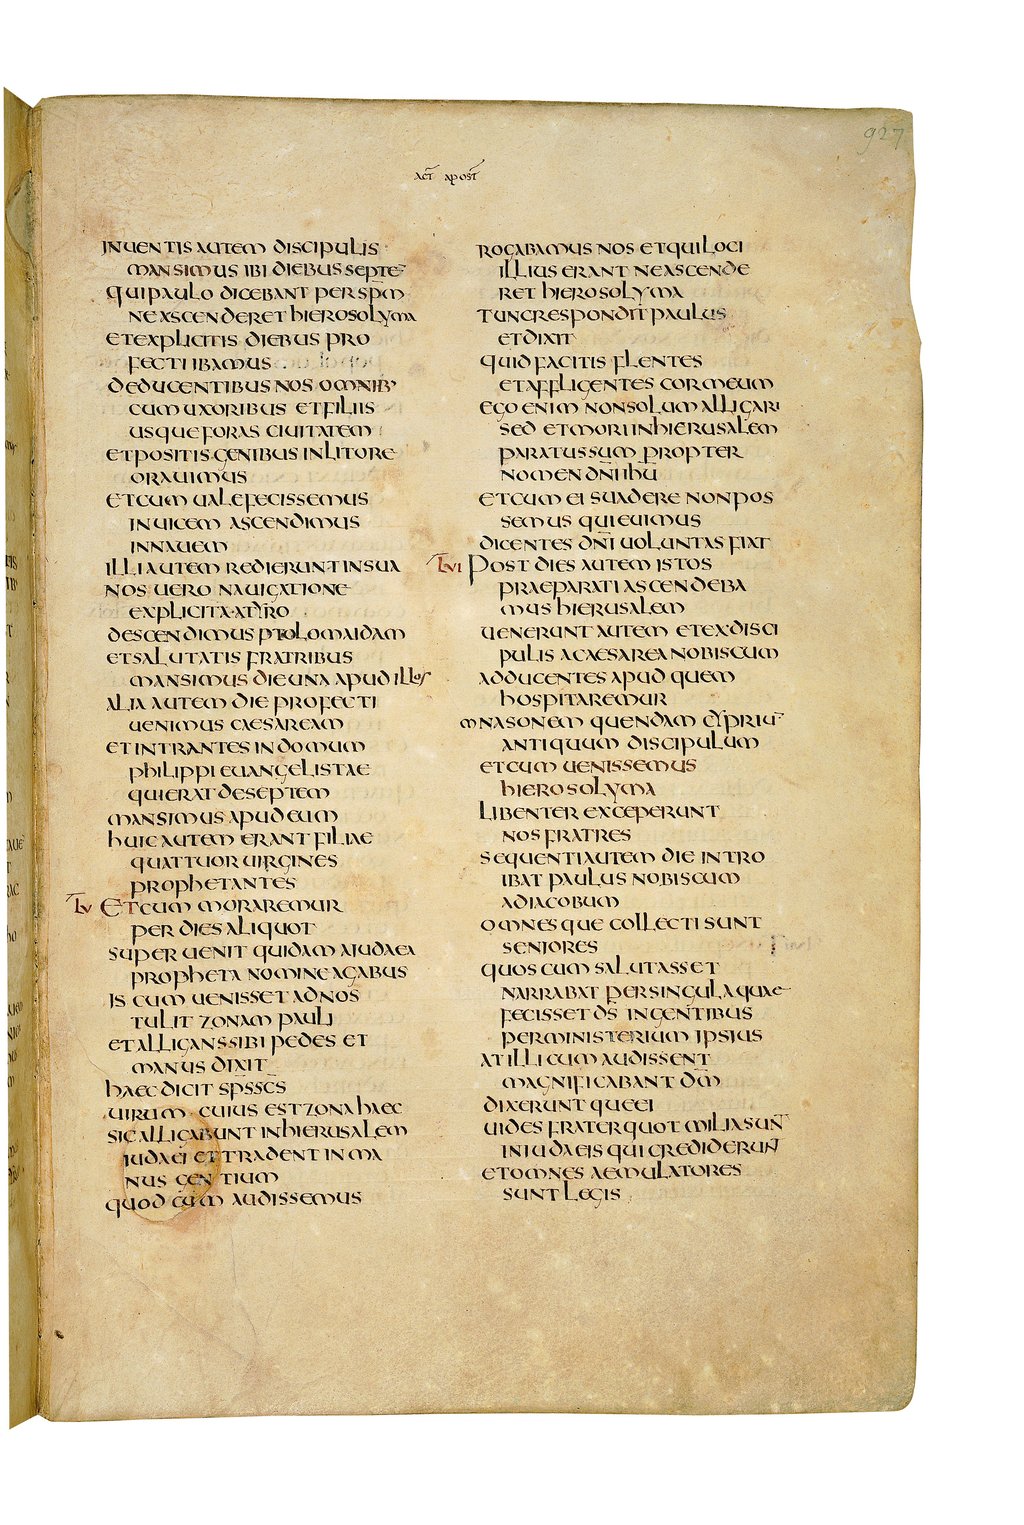 927
ACT APOST
INUENTIS AUTEM DISCIPULIS
MANSIMUS IBI DIEBUS SEPTE
QUI PAULO DICEBANT PER SPM
NE ASCENDERET HIEROSOLYMA
ET EXPLICITIS DIEBUS PRO
FECTI IBAMUS
DEDUCENTIBUS NOS OMNIB'
CUM UXORIBUS ET FILIIS
USQUE FORAS CIUITATEM
ET POSITIS GENIBUS IN LITORE
ORAUIMUS
ET CUM UALEFECISSEMUS
INUICEM ASCENDIMUS
IN NAUEM
ILLI AUTEM REDIERUNT IN SUA
NOS UERO NAUIGATIONE
EXPLICITA A TYRO
DESCENDIMUS PTOLOMAIDAM
ET SALUTATIS FRATRIBUS
MANSIMUS DIE UNA APUD ILLOS
ALIA AUTEM DIE PROFECTI
UENIMUS CAESAREAM
ET INTRANTES IN DOMUM
PHILIPPI EUANGELISTAE
QUI ERAT DE SEPTEM
MANSIMUS APUD EUM
HUIC AUTEM ERANT FILIAE
QUATTUOR UIRGINES
PROPHETANTES
LV ET CUM MORAREMUR
PER DIES ALIQUOT
SUPERUENIT QUIDAM A IUDAEA
PROPHETA NOMINE AGABUS
IS CUM UENISSET AD NOS
TULIT ZONAM PAULI
ET ALLIGANS SIBI PEDES ET
MANUS DIXIT
HAEC DICIT SPS SCS
UIRUM CUIUS EST ZONA HAEC
SIC ALLIGABUNT IN HIERUSALEM
IUDAEI ET TRADENT IN MA
NUS GENTIUM
QUOD CUM AUDISSEMUS
ROGABAMUS NOS ET QUI LOCI
ILLIUS ERANT NE ASCENDE
RET HIEROSOLYMA
TUNC RESPONDIT PAULUS
ET DIXIT
QUID FACITIS FLENTES
ET AFFLIGENTES COR MEUM
EGO ENIM NON SOLUM ALLIGARI
SED ET MORI IN HIERUSALEM
PARATUS SUM PROPTER
NOMEN DNI IHU
ET CUM EI SUADERE NON POS
SEMUS QUIEUIMUS
DICENTES DNI UOLUNTAS FIAT
LVI POST DIES AUTEM ISTOS
PRAEPARATI ASCENDEBA
MUS HIERUSALEM
UENERUNT AUTEM ET EX DISCI
PULIS A CAESAREA NOBISCUM
ADDUCENTES APUD QUEM
HOSPITAREMUR
MNASONEM QUENDAM CYPRIU
ANTIQUUM DISCIPULUM
ET CUM UENISSEMUS
HIEROSOLYMA
LIBENTER EXCEPERUNT
NOS FRATRES
SEQUENTI AUTEM DIE INTRO
IBAT PAULUS NOBISCUM
AD IACOBUM
OMNESQUE COLLECTI SUNT
SENIORES
QUOS CUM SALUTASSET
NARRABAT PER SINGULA QUAE
FECISSET DS IN GENTIBUS
PER MINISTERIUM IPSIUS
AT ILLI CUM AUDISSENT
MAGNIFICABANT DM
DIXERUNTQUE EI
UIDES FRATER QUOT MILIA SUN
IN IUDAEIS QUI CREDIDERUNT
ET OMNES AEMULATORES
SUNT LEGIS